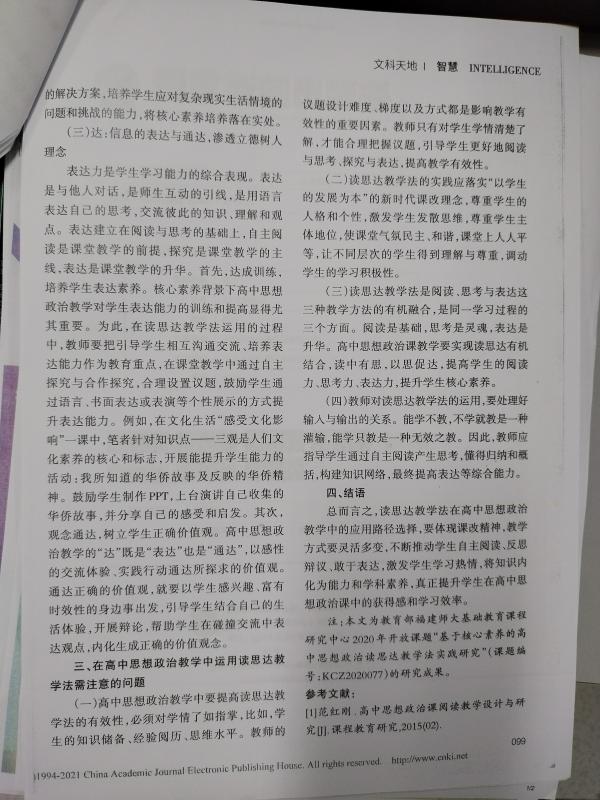 文科天地 | 智慧 INTELLIGENCE
的解决方案,培养学生应对复杂现实生活情境的
问题和挑战的能力,将核心素养培养落在实处。
(三)达:信息的表达与通达,渗透立德树人
理念
表达力是学生学习能力的综合表现。表达
是与他人对话,是师生互动的引线,是用语言
表达自己的思考,交流彼此的知识、理解和观
点。表达建立在阅读与思考的基础上,自主阅
读是课堂教学的前提,探究是课堂教学的主
线,表达是课堂教学的升华。首先,达成训练,
培养学生表达素养。核心素养背景下高中思想
政治教学对学生表达能力的训练和提高显得尤
其重要。为此,在读思达教学法运用的过程
中,教师要把引导学生相互沟通交流、培养表
达能力作为教育重点,在课堂教学中通过自主
探究与合作探究,合理设置议题,鼓励学生通
过语言、书面表达或表演等个性展示的方式提
升表达能力。例如,在文化生活“感受文化影
响”一课中,笔者针对知识点——三观是人们文
化素养的核心和标志,开展能提升学生能力的
活动:我所知道的华侨故事及反映的华侨精
神。鼓励学生制作PPT,上台演讲自己收集的
华侨故事,并分享自己的感受和启发。其次,
观念通达,树立学生正确价值观。高中思想政
治教学的“达”既是“表达”也是“通达”,以感性
的交流体验、实践行动通达所探求的价值观。
通达正确的价值观,就要以学生感兴趣、富有
时效性的身边事出发,引导学生结合自己的生
活体验,开展辩论,帮助学生在碰撞交流中表
达观点,内化生成正确的价值观念。
三、在高中思想政治教学中运用读思达教
学法需注意的问题
(一)高中思想政治教学中要提高读思达教
学法的有效性,必须对学情了如指掌,比如,学
生的知识储备、经验阅历、思维水平。教师的
议题设计难度、梯度以及方式都是影响教学有
效性的重要因素。教师只有对学生学情清楚了
解,才能合理把握议题,引导学生更好地阅读
与思考、探究与表达,提高教学有效性。
(二)读思达教学法的实践应落实“以学生
的发展为本”的新时代课改理念,尊重学生的
人格和个性,激发学生发散思维,尊重学生主
体地位,使课堂气氛民主、和谐,课堂上人人平
等,让不同层次的学生得到理解与尊重,调动
学生的学习积极性。
(三)读思达教学法是阅读、思考与表达这
三种教学方法的有机融合,是同一学习过程的
三个方面。阅读是基础,思考是灵魂,表达是
升华。高中思想政治课教学要实现读思达有机
结合,读中有思,以思促达,提高学生的阅读
力、思考力、表达力,提升学生核心素养。
(四)教师对读思达教学法的运用,要处理好
输入与输出的关系。能学不教,不学就教是一种
灌输,能学只教是一种无效之教。因此,教师应
指导学生通过自主阅读产生思考,懂得归纳和概
括,构建知识网络,最终提高表达等综合能力。
四、结语
总而言之,读思达教学法在高中思想政治
教学中的应用路径选择,要体现课改精神,教学
方式要灵活多变,不断推动学生自主阅读、反思
辩议、敢于表达,激发学生学习热情,将知识内
化为能力和学科素养,真正提升学生在高中思
想政治课中的获得感和学习效率。
注:本文为教育部福建师大基础教育课程
研究中心2020年开放课题“基于核心素养的高
中思想政治读思达教学法实践研究”(课题编
号:KCZ2020077)的研究成果。
参考文献:
[1]范红刚.高中思想政治课阅读教学设计与研
究[J].课程教育研究,2015(02).
099
)1994-2021 China Academic Journal Electronic Publishing House. All rights reserved. http://www.cnki.net
1/2